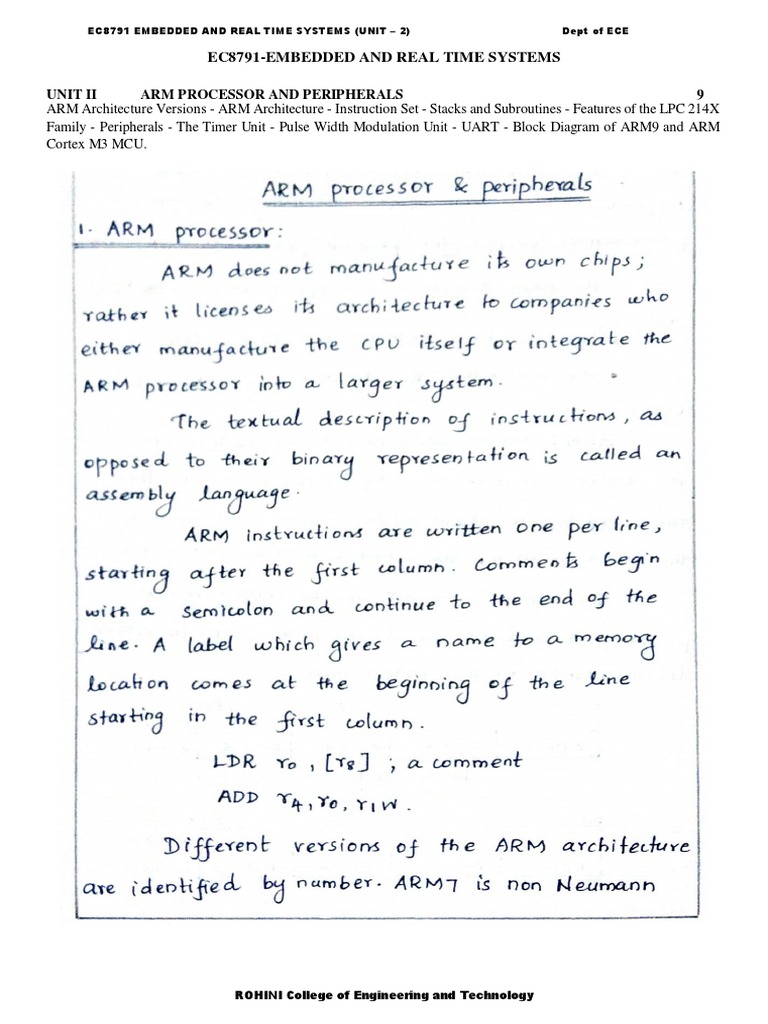 EC8791 EMBEDDED AND REAL TIME SYSTEMS (UNIT – 2) Dept of ECE
EC8791-EMBEDDED AND REAL TIME SYSTEMS
UNIT II ARM PROCESSOR AND PERIPHERALS 9
ARM Architecture Versions - ARM Architecture - Instruction Set - Stacks and Subroutines - Features of the LPC 214X
Family - Peripherals - The Timer Unit - Pulse Width Modulation Unit - UART - Block Diagram of ARM9 and ARM
Cortex M3 MCU.
ARM processor & peripherals
1. ARM processor:
ARM does not manufacture its own chips;
rather it licenses its architecture to companies who
either manufacture the CPU itself or integrate the
ARM processor into a larger system.
The textual description of instructions, as
opposed to their binary representation is called an
assembly language.
ARM instructions are written one per line,
starting after the first column. Comments begin
with a semicolon and continue to the end of the
line. A label which gives a name to a memory
location comes at the beginning of the line
starting in the first column.
LDR r0, [r8] ; a comment
ADD r4, r0, r1W.
Different versions of the ARM architecture
are identified by number. ARM7 is non Neumann
ROHINI College of Engineering and Technology